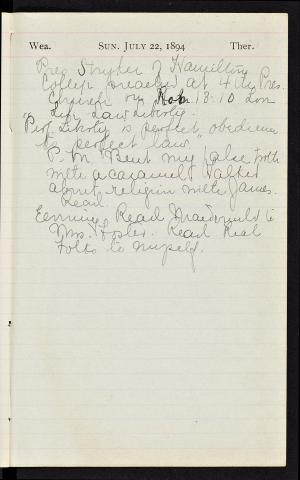 Wea. SUN. JULY 22, 1894 Ther.
Pres Stryker of Hamilton
College preached at 4th Pres.
Church on Rom. 13:10 Love
Law Liberty.
Perf. Liberty is perfect obedience
to perfect law.
P.M. Bent my false tooth
with a caramel. Talked
about religion with James.
Read.
Evening Read Macdonald to
Mrs. Foster. Read Real
Folks to myself.